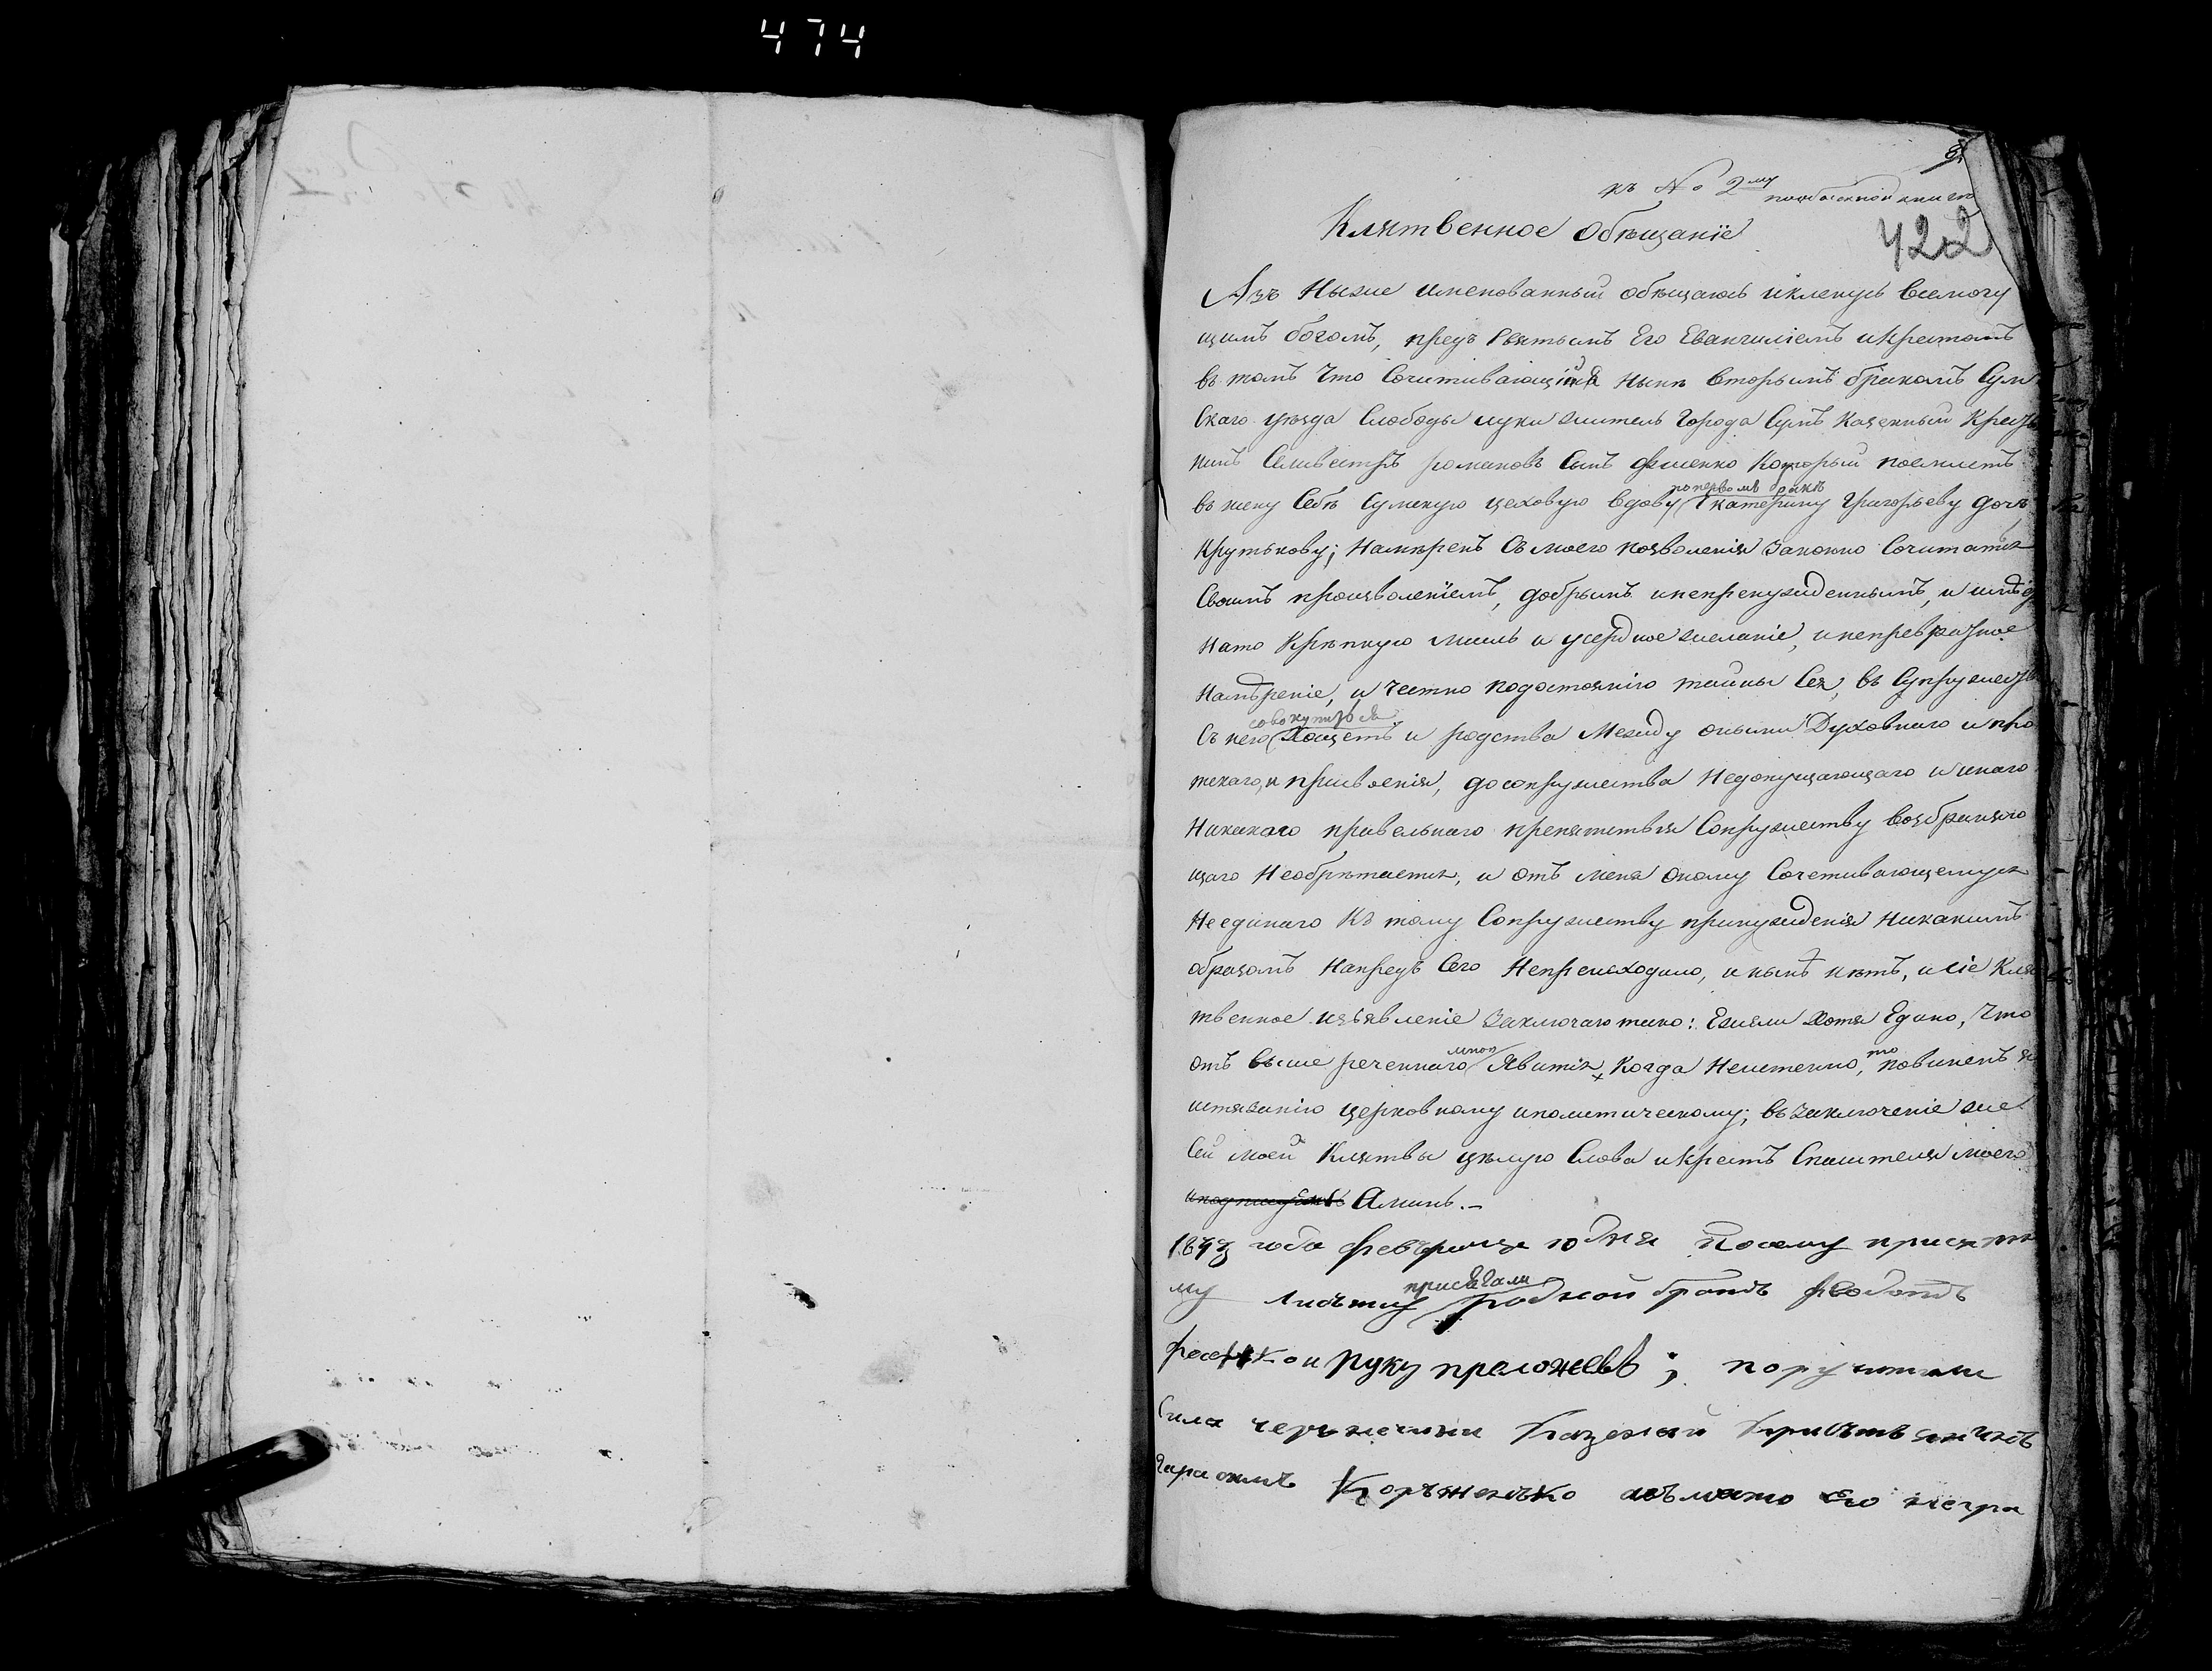 474
къ № 2му
422
Клятвенное обѣщаніе
Азъ ниже именованный обѣщаюсь и кленусь всемогу
щимъ богомъ, предъ святымъ Его Евангиліемъ и крестомъ
въ томъ что сочитивающійся нынѣ вторымъ бракомъ Сум
скаго уѣзда слободы луки житель города Сумъ казенный крестья
нинъ Селивестръ романовъ сынъ Фесенко который поемлетъ
въ жену себѣ сумскую цеховую вдову по первомъ бракѣ Екатерину Григорьеву дочь
Крутькову; намѣренъ съ моего позволенія законно сочитатися
своимъ произволеніемъ, добрымъ и непренужденнымъ, и имѣя
на то крѣпкую мысль и усердное желаніе, и непревратное
намѣреніе, и честно по достоянію тайны сея, въ супружество
съ нею совокупится хощетъ и родства между оными Духовнаго и пло
тскаго, и присвоенія, до сопружества недопущающаго и инаго
никакаго правельнаго препятствія сопружеству возбраняю
щаго необрѣтается, и отъ меня оному сочетивающемуся
неединаго къ тому сопружеству принужденія никакимъ
образомъ напредъ сего непреисходило, и нынѣ нѣтъ, и сіе кля
твенное изъявленіе заключаю тако: Ежели хотя едино, что
отъ выше реченнаго мною явится когда неистенно, то повиненъ я
истязанію церковному и политическому; въ заключеніе же
сей моей клятвы цѣлую слова и крестъ спасителя моего
Аминь.
года февраля 10 дня Посему присяжно
му листу присягали родной братъ
Фесенко и руку преложевъ; поручители
Казеный
Коръженъко его негра